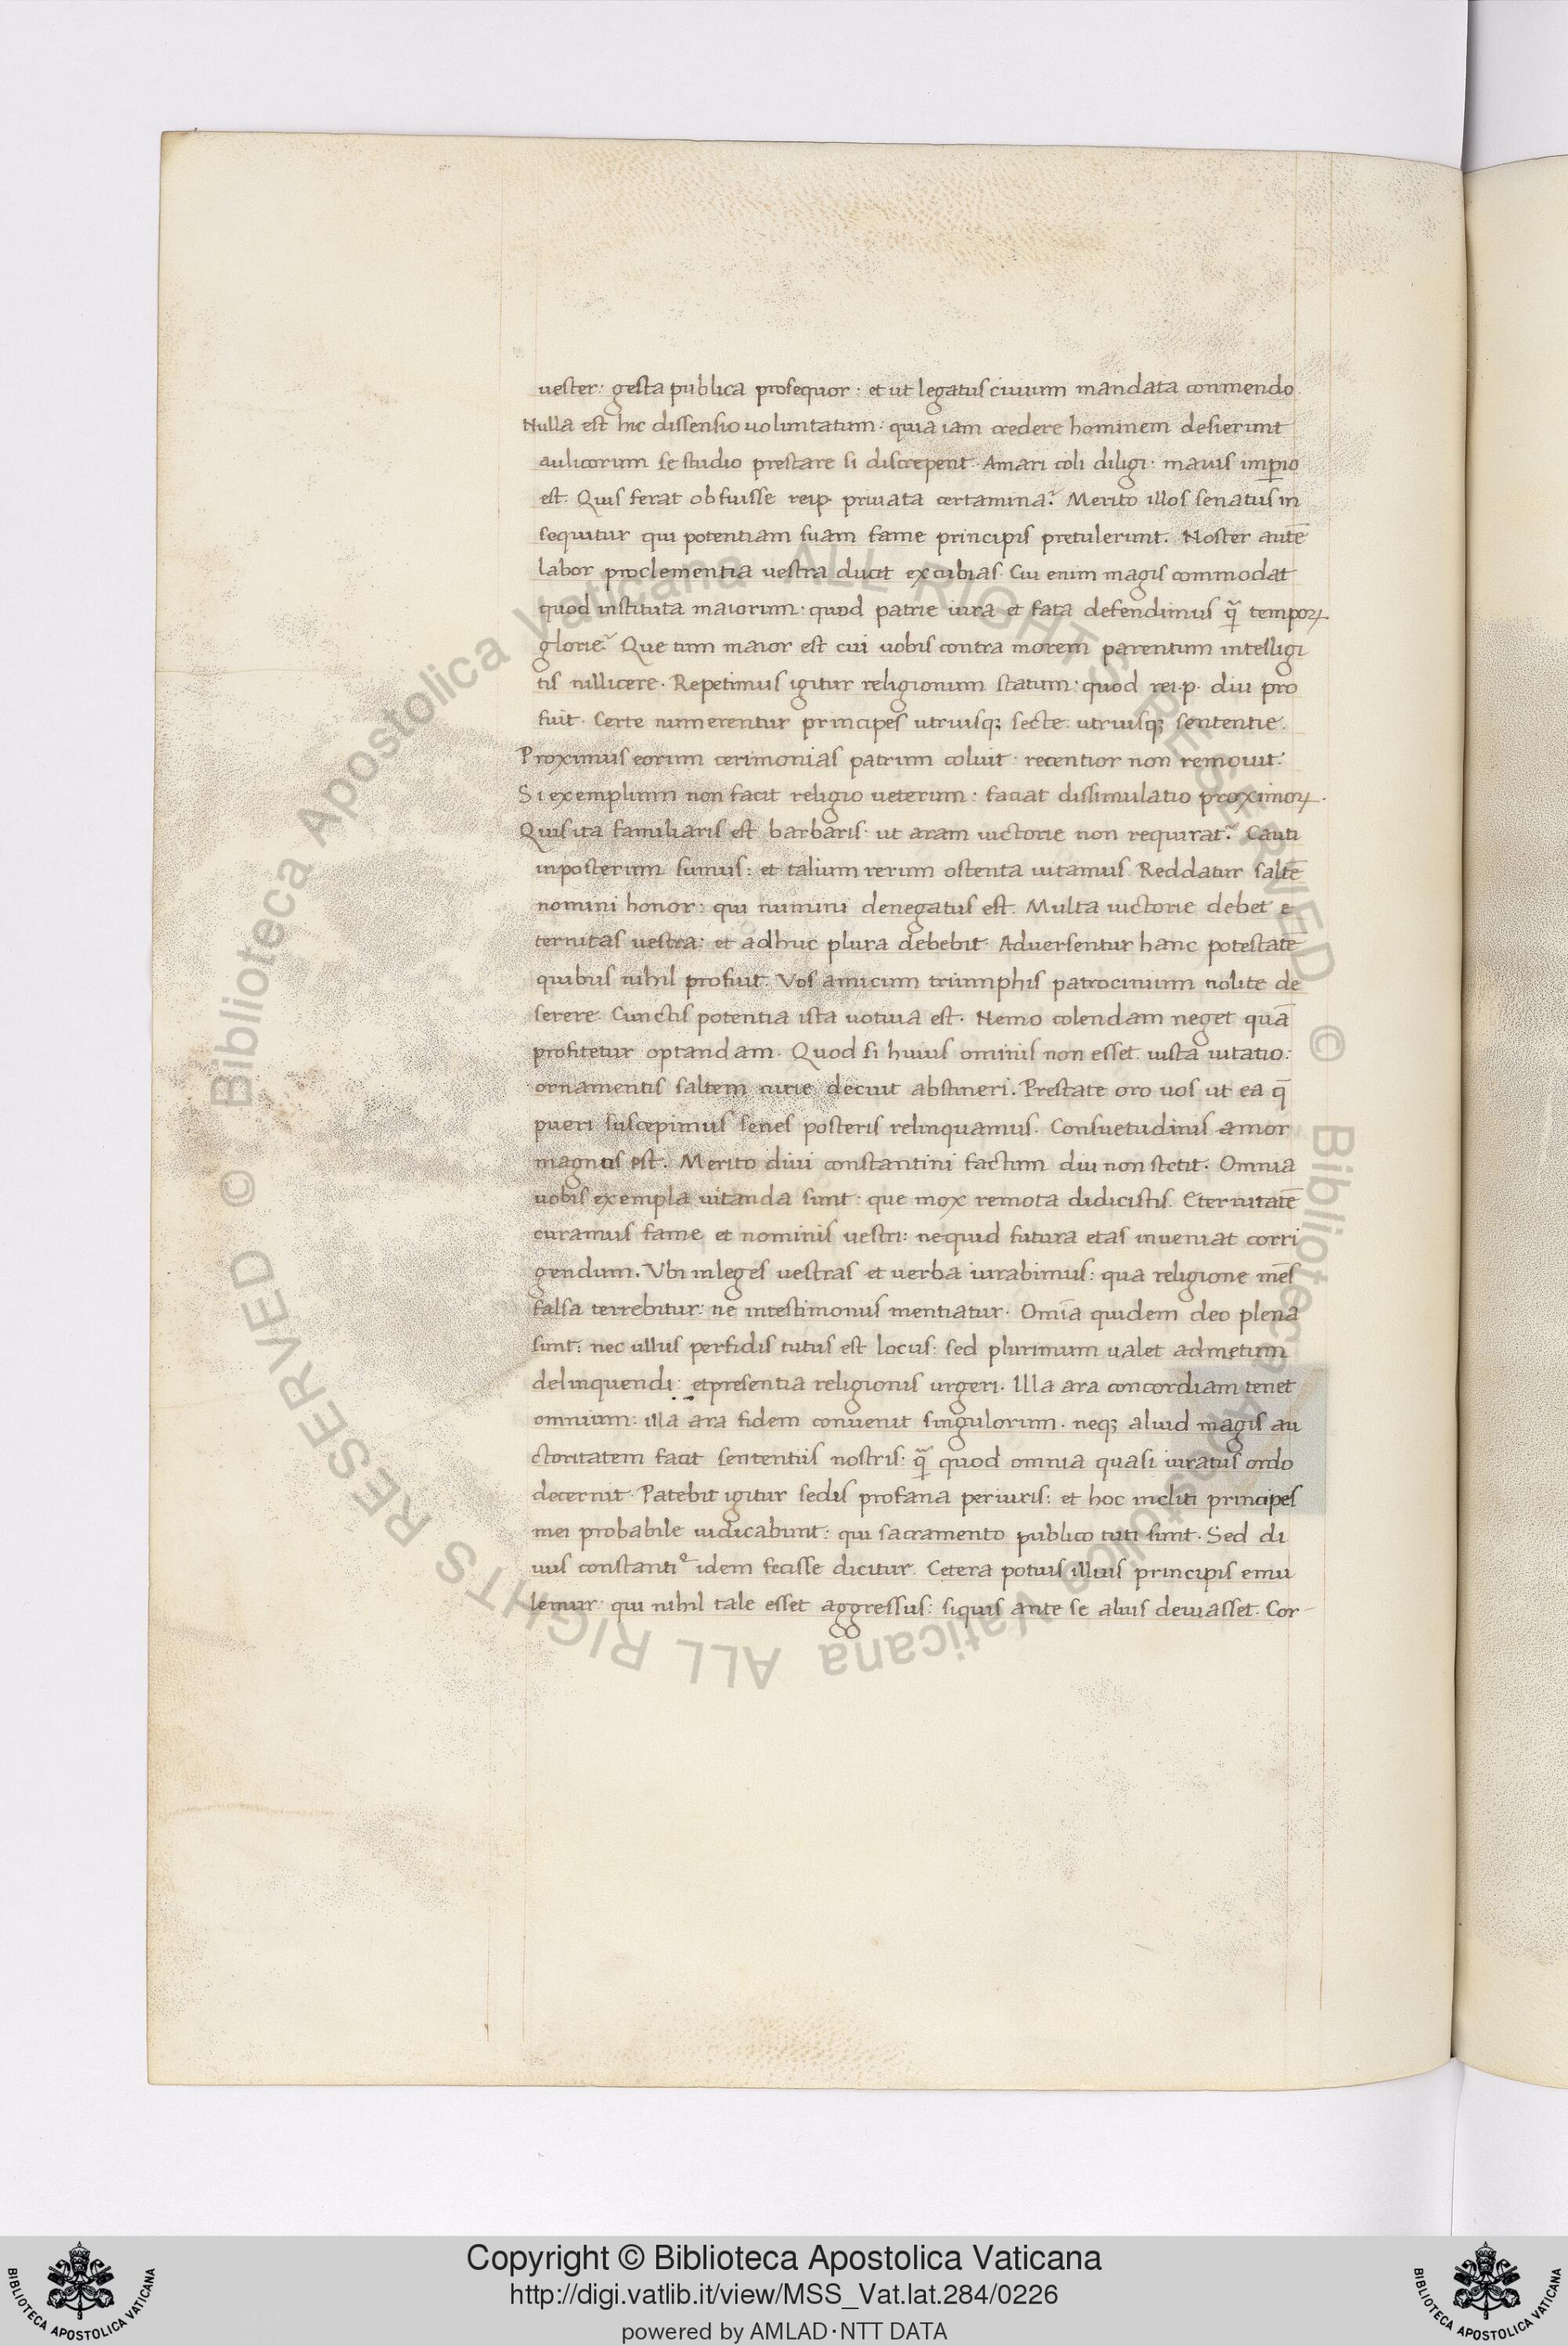 uester: gesta publica prosequor: et ut legatus ciuium mandata conmendo.
Nulla est hic dissensio uoluntatum: quia iam credere hominem desierunt
aulicorum se studio prestare si discrepent. Amari coli diligi. maius imperio
est. Quis ferat obfuisse reip. priuata certamina? Merito illos senatus in
sequitur qui potentiam suam fame principis pretulerunt. Noster autē
labor proclementia uestra ducit excubias. Cui enim magis commodat
quod instituta maiorum: quod patrie iura et fata defendimus q̃ temporꝝ
glorie? Que tum maior est cui uobis contra morem parentum intelligi
tis nillicere. Repetimus igitur religionum statum: quod rei.p. diu pro
fuit. Certe numerentur principes utriusq; secte. utriusq; sententie.
Proximus eorum cerimonias patrum coluit: recentior non remouit.
Si exemplum non facit religio ueterum: faciat dissimulatio proximoꝝ.
Quis ita familiaris est barbaris. ut aram uictorie non requirat? Cauti
inposterum sumus: et talium rerum ostenta uitamus. Reddatur saltē
nomini honor: qui numini denegatus est. Multa uictorie debet e
ternitas uestra: et adhuc plura debebit. Aduersentur hanc potestatē
quibus nihil profuit. Vos amicum triumphis patrocinium nolite de
serere. Cunctis potentia ista uotiua est. Nemo colendam neget quā
profitetur optandam. Quod si huius ominis non esset iusta uitatio:
ornamentis saltem curie decuit abstineri. Prestate oro uos ut ea q̄
pueri suscepimus senes posteris relinquamus. Consuetudinis amor
magnus est. Merito diui constantini factum diu non stetit. Omnia
uobis exempla uitanda sunt: que mox remota didicistis. Eternitatē
curamus fame et nominis uestri: nequid futura etas inueniat corri
gendum. Vbi inleges uestras et uerba iurabimus: qua religione mēs
falsa terrebitur: ne intestimoniis mentiatur. Omīa quidem deo plena
sunt: nec ullus perfidis tutus est locus: sed plurimum ualet admetum
delinquendi: etpresentia religionis urgeri. Illa ara concordiam tenet
omnium: illa ara fidem conuenit singulorum. neq; aliud magis au
ctoritatem facit sententiis nostris: q̃ quod omnia quasi iuratus ordo
decernit. Patebit igitur sedis profana periuris: et hoc incliti principes
mei probabile iudicabunt: qui sacramento publico tuti sunt. Sed di
uus constanti⁹ idem fecisse dicitur. Cetera potius illius principis emu
lemur: qui nihil tale esset aggressus: siquis ante se alius deuiasset. Cor-
© Biblioteca Apostolica Vaticana ALL RIGHTS RESERVED © Biblioteca Apostolica Vaticana ALL RIGHTS RESERVED
Copyright © Biblioteca Apostolica Vaticana
http://digi.vatlib.it/view/MSS_Vat.lat.284/0226
powered by AMLAD·NTT DATA
BIBLIOTECA APOSTOLICA VATICANA
BIBLIOTECA APOSTOLICA VATICANA